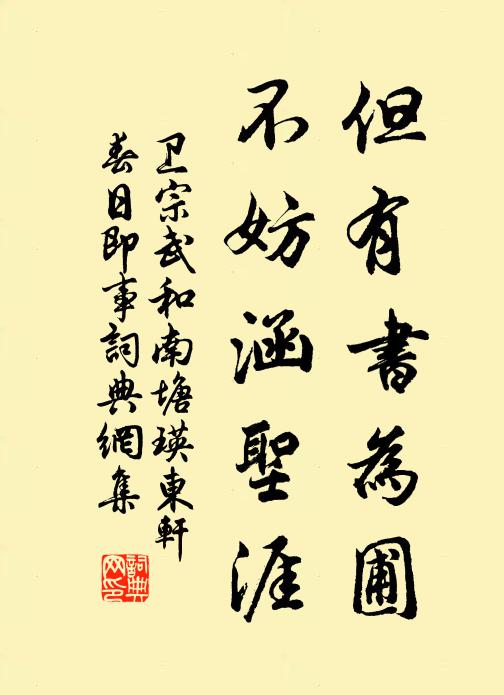 但有書為圃
不妨涵聖涯
卫宗武和南塘瑛東軒
春日即事詞典網集
詞典
网印